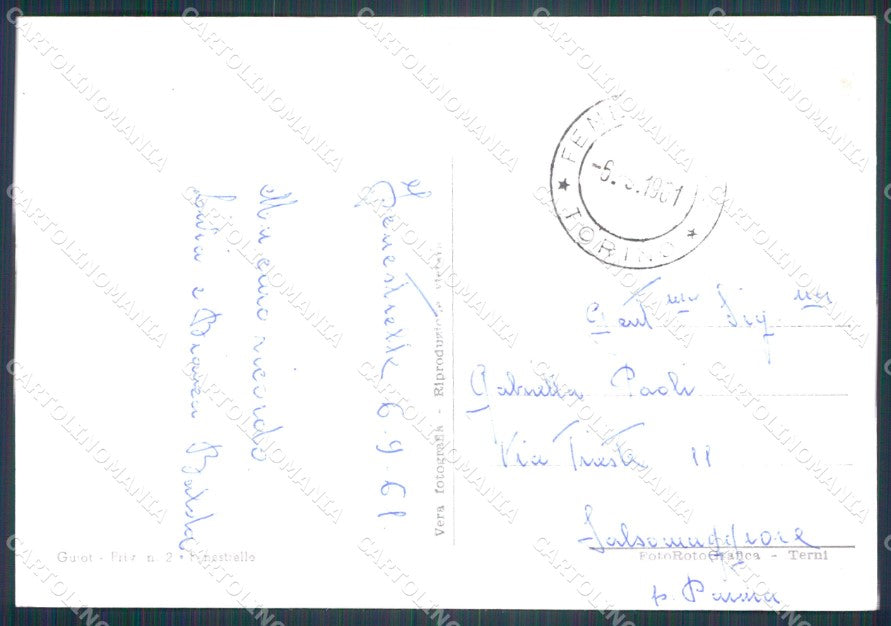 Fenestrelle 6.9.61.
Un caro ricordo
Livia e Bianca
Vera fotografia - Riproduzione vietata
FENE
-6. .1961
TORINO
Gent.ma Sig.na
Gabriella Paoli
Via Trieste 11
Salsomaggiore
p. Parma
n. 2 - Fenestrelle
FotoRotoGrafica - Terni
CARTOLINOMANIA